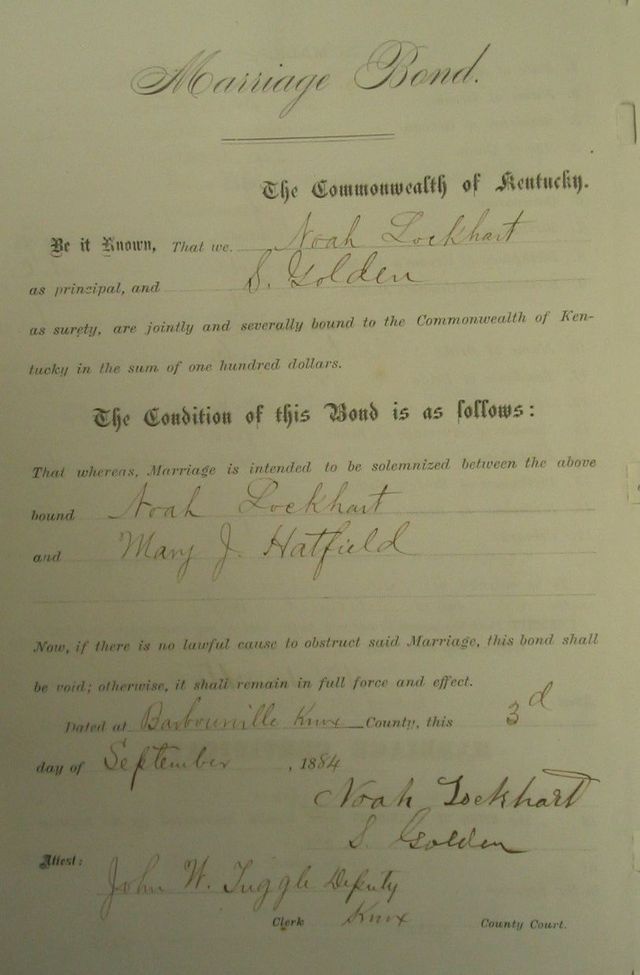 Marriage Bond.
The Commonwealth of Kentucky.
Be it Known, That we. Noah Lockhart
as principal, and S. Golden
as surety, are jointly and severally bound to the Commonwealth of Ken-
tucky in the sum of one hundred dollars.
The Condition of this Bond is as follows:
That whereas, Marriage is intended to be solemnized between the above
bound Noah Lockhart
and Mary J. Hatfield
Now, if there is no lawful cause to obstruct said Marriage, this bond shall
be void; otherwise, it shall remain in full force and effect.
Dated at Barbourville Knox County, this 3d
day of September, 1884
Noah Lockhart
S. Golden
Attest:
John W. Tuggle Deputy
Clerk Knox County Court.